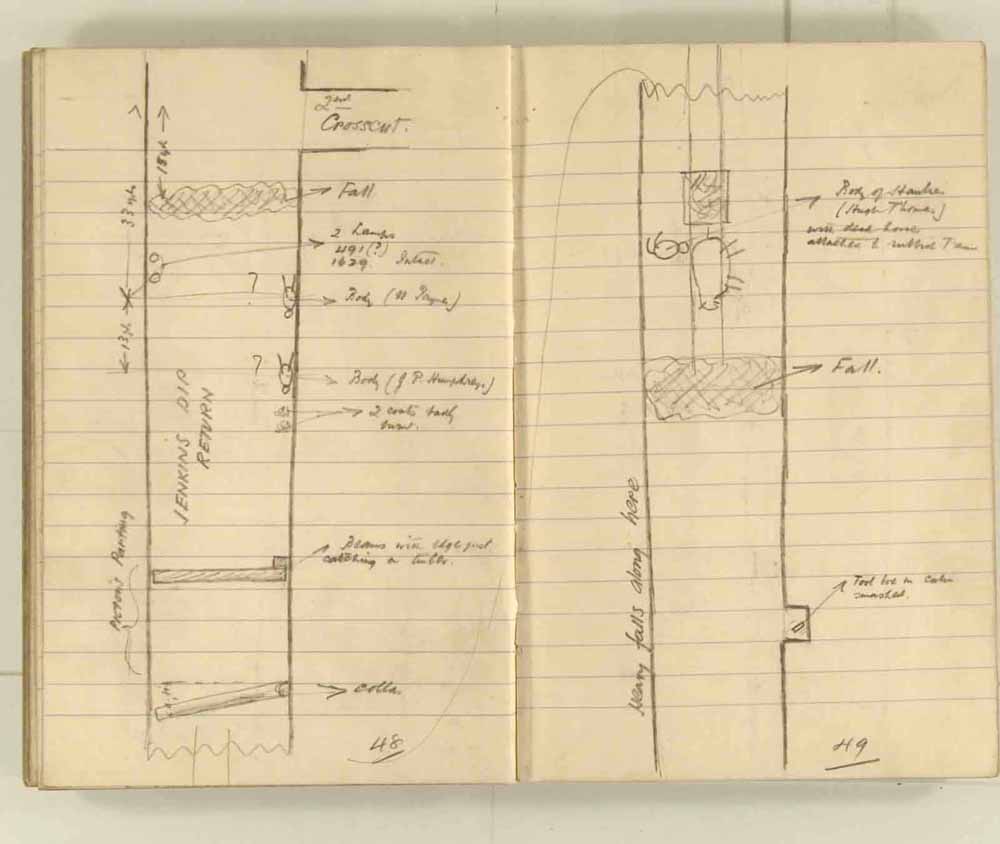 2nd
Crosscut.
18 yds
Fall
33 yds
2 Lamps
491 (?)
1629. Intact.
?
Body (
13 yds
?
Body (J P. Humphreys)
2 coats badly
burnt.
JENKINS DIP
RETURN
Parting
Beams with edge just
catching on timber.
collar
48
Body of Haulier
(Hugh Thomas)
with dead horse
attached to rubbed Tram
Fall.
Heavy falls along here
Tool box in Cabin
smashed.
49